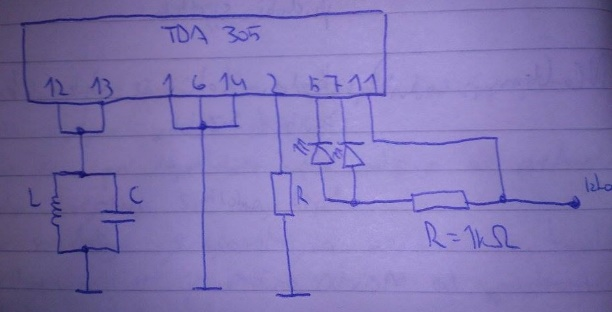 TDA 305
12 13 1 6 14 2 5 7 11
L C R
R=1kΩ